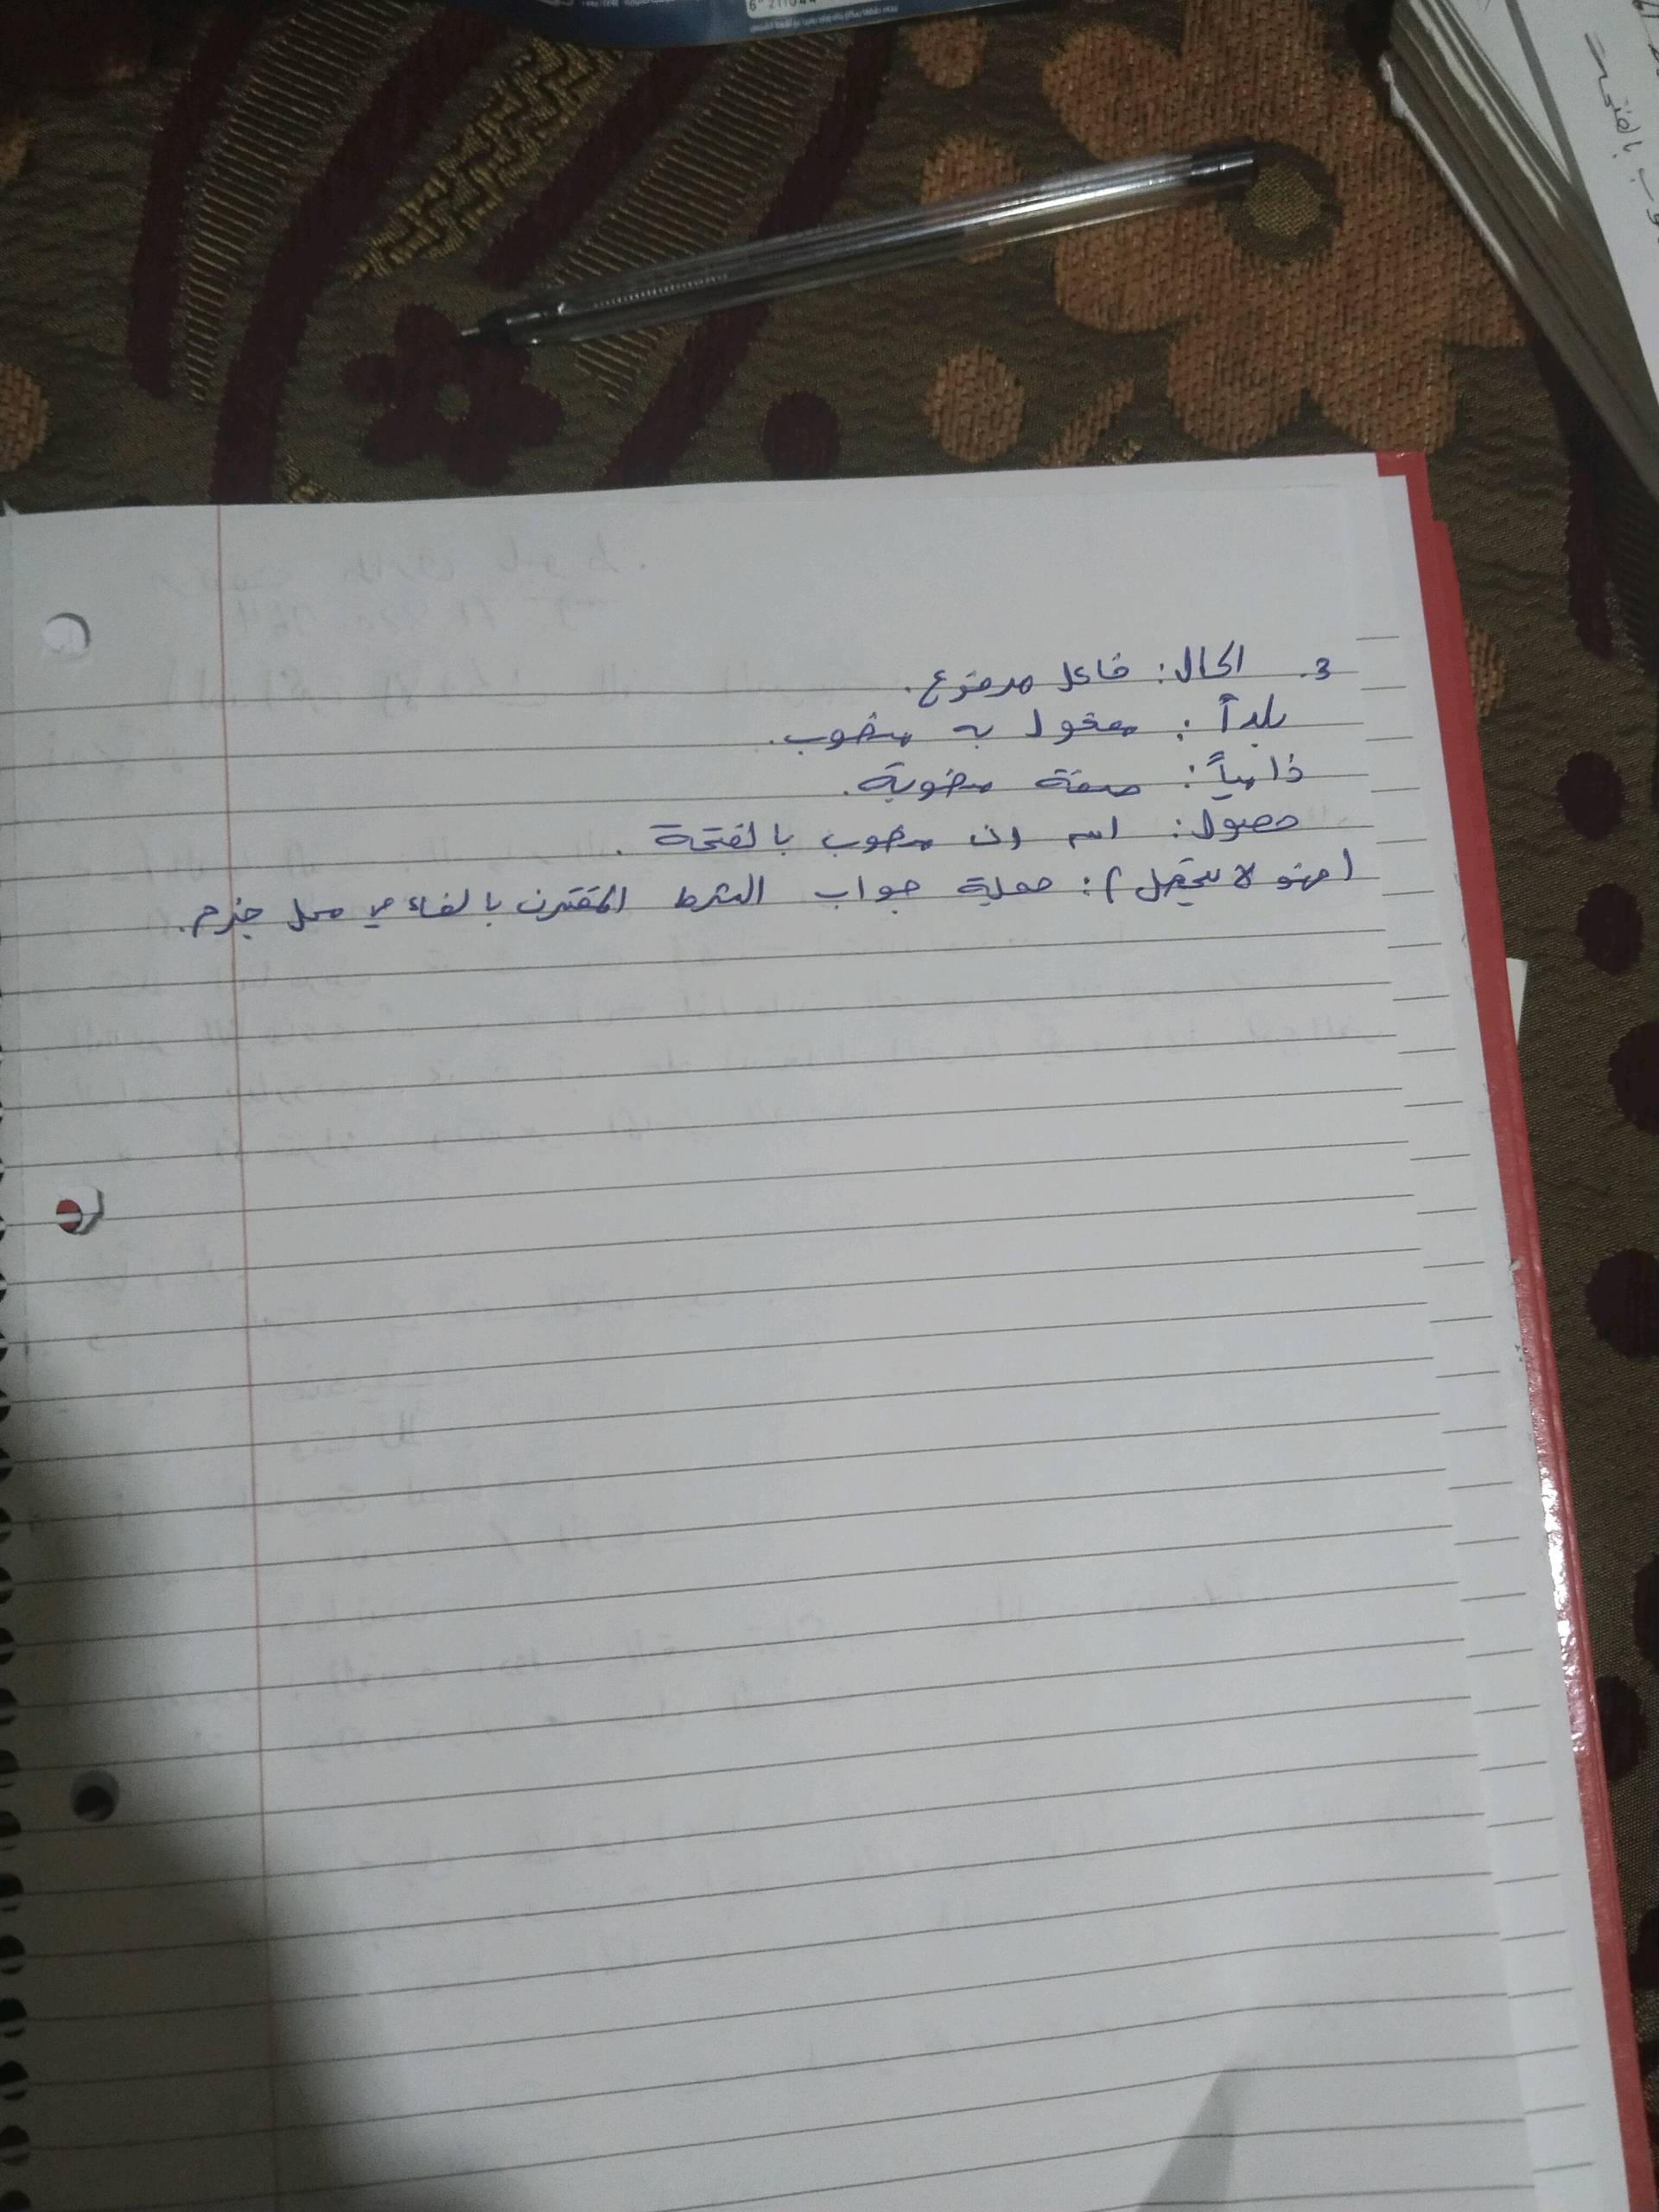 3. الحال: فاعل مرفوع.
بلداً: مفعول به منصوب.
ذاهباً: صفة منصوبة.
حصول: اسم إن منصوب بالفتحة.
(فهو لا يتحصل): جملة جواب الشرط المقترن بالفاء في محل جزم.